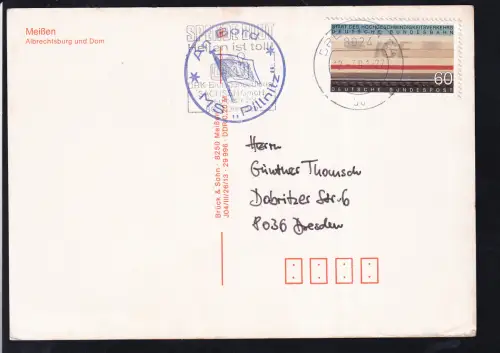 Meißen
Albrechtsburg und Dom
Helfen ist toll!
A Bord
MS „Pillnitz"
START DES HOCHGESCHWINDIGKEITSVERKEHRS
DEUTSCHE BUNDESBAHN
60
DEUTSCHE BUNDESPOST
8024
Brück & Sohn · 8250 Meißen
J04/III/26/13 · 29 996 · DDR
Herrn
Günther Thomsch
Dobritzer Str. 6
8036 Dresden